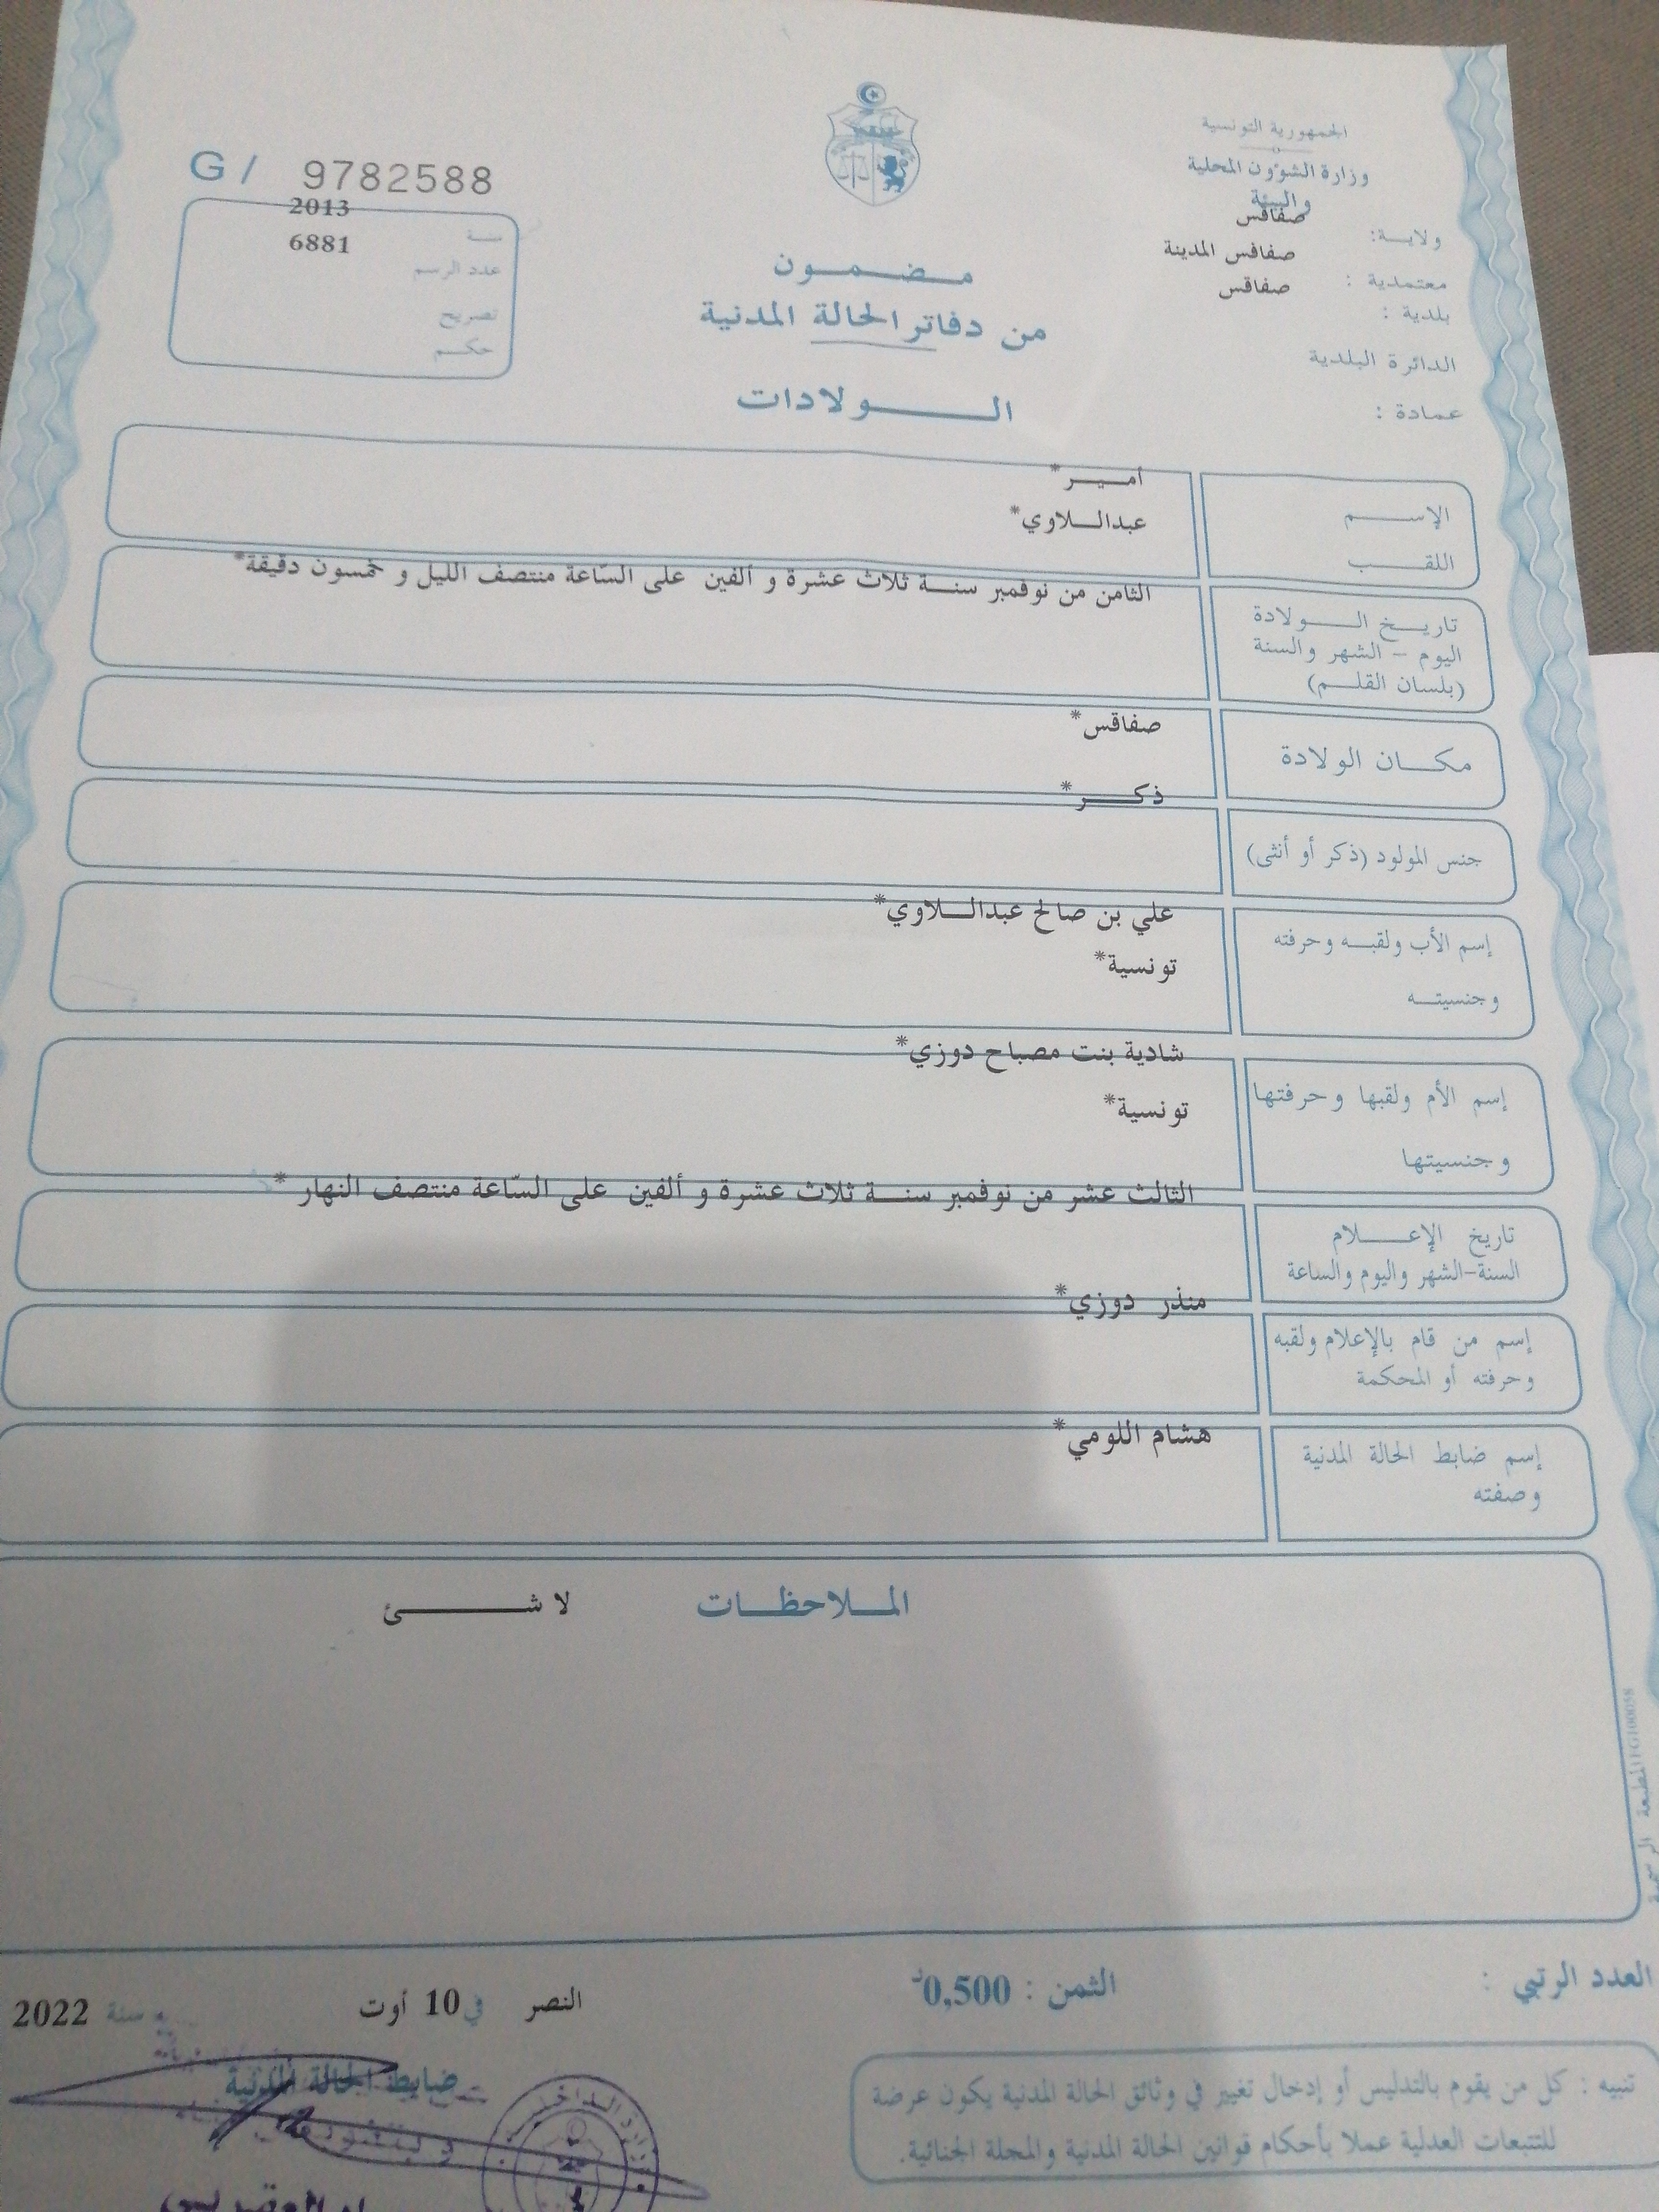 الجمهورية التونسية
وزارة الشؤون المحلية
والبيئة
ولاية: صفاقس
معتمدية : صفاقس المدينة
بلدية : صفاقس
الدائرة البلدية
عمادة :
G / 9782588
سنة 2013
عدد الرسم 6881
تصريح
حكم
مضمون
من دفاتر الحالة المدنية
الولادات
الإسم امير*
اللقب عبداللاوي*
تاريخ الولادة
اليوم - الشهر والسنة
(بلسان القلم)
الثامن من نوفمبر سنة ثلاث عشرة و ألفين على السّاعة منتصف الليل و خمسون دقيقة*
مكان الولادة
صفاقس*
جنس المولود (ذكر أو أنثى)
ذكر*
إسم الأب ولقبه وحرفته
وجنسيته
علي بن صالح عبداللاوي*
تونسية*
إسم الأم ولقبها وحرفتها
وجنسيتها
شادية بنت مصباح دوزي*
تونسية*
تاريخ الإعلام
السنة-الشهر واليوم والساعة
الثالث عشر من نوفمبر سنة ثلاث عشرة و ألفين على السّاعة منتصف النهار *
إسم من قام بالإعلام ولقبه
وحرفته أو المحكمة
منذر دوزي*
إسم ضابط الحالة المدنية
وصفته
هشام اللومي*
الملاحظات لا شئ
المطبعة الرسمية
العدد الرتبي :
الثمن : 0,500د
النصر في 10 أوت سنة 2022
ضابط الحالة المدنية
تنبيه : كل من يقوم بالتدليس أو إدخال تغيير في وثائق الحالة المدنية يكون عرضة
للتتبعات العدلية عملا بأحكام قوانين الحالة المدنية والمجلة الجنائية.